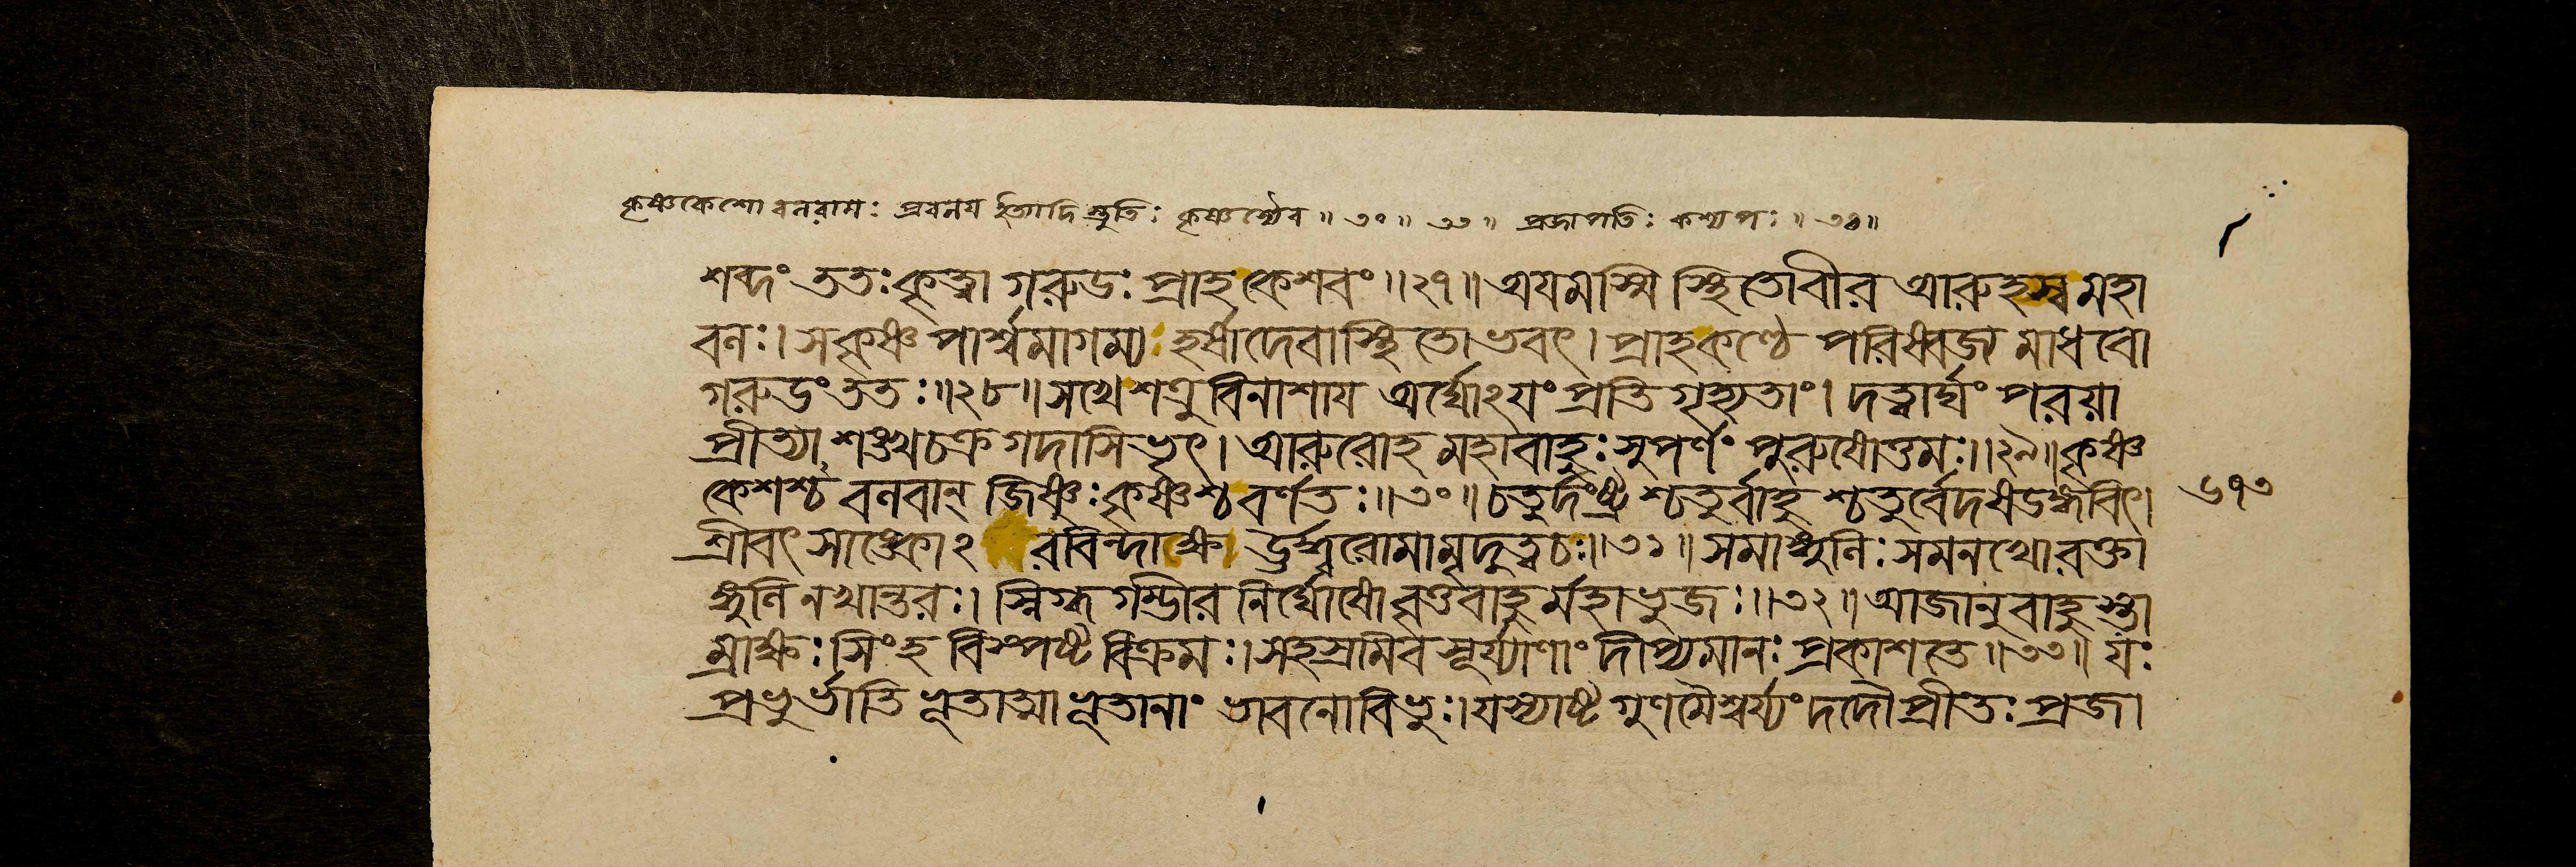 কৃষ্ণকেশো বলরামঃ প্রবলয ইত্যাদি স্তুতিঃ কৃষ্ণশ্চৈব ॥ ৩০ ॥ ৩৩ ॥ প্রজাপতিঃ কশ্যপঃ ॥ ৩৪ ॥
শব্দং ততঃ কৃত্বা গরুডঃ প্রাহ কেশবং ॥ ২৭ ॥ অযমস্মি স্থিতো বীর আরুহস্ব মহা
বলঃ । স কৃষ্ণ পার্শ্বমাগম্য হর্ষাদেবাস্থিতোভবৎ । প্রাহ কণ্ঠে পরিষ্বজ্য মাধবো
গরুডং ততঃ ॥ ২৮ ॥ সখে শত্রু বিনাশায অর্ঘ্যোঽযং প্রতি গৃহ্যতাং । দত্বার্ঘং পরয়া
প্রীত্যা শঙ্খচক্রগদাসিভৃৎ । আরুরোহ মহাবাহুঃ সুপর্ণং পুরুষোত্তমঃ ॥ ২৯ ॥ কৃষ্ণ
কেশশ্চ বলবান্ জিষ্ণুঃ কৃষ্ণশ্চ বর্ণতঃ ॥ ৩০ ॥ চতুর্দংষ্ট্র শ্চতুর্বাহু শ্চতুর্বেদ ষডঙ্গবিৎ।
৬৭৩
শ্রীবৎসাঙ্কোঽ রবিন্দাক্ষো র্দ্ধরোমা মৃদুত্বচঃ ॥ ৩১ ॥ সমাঙ্গুলিঃ সমনখো রক্তা
ঙ্গুলি নখান্তরঃ । স্নিগ্ধ গম্ভীর নির্ঘোষো বৃত্তবাহু র্মহাভুজঃ ॥ ৩২ ॥ আজানুবাহু স্তা
ম্রাক্ষঃ সিংহ বিস্পষ্ট বিক্রমঃ । সহস্রমিব সূর্য্যাণাং দীপ্যমানঃ প্রকাশতে ॥ ৩৩ ॥ যঃ
প্রভু র্ভাতি ভূতাত্মা ভূতানাং ভাবনো বিভুঃ । যস্যাষ্ট গুণমৈশ্বর্য্যং দদৌ প্রীতঃ প্রজা